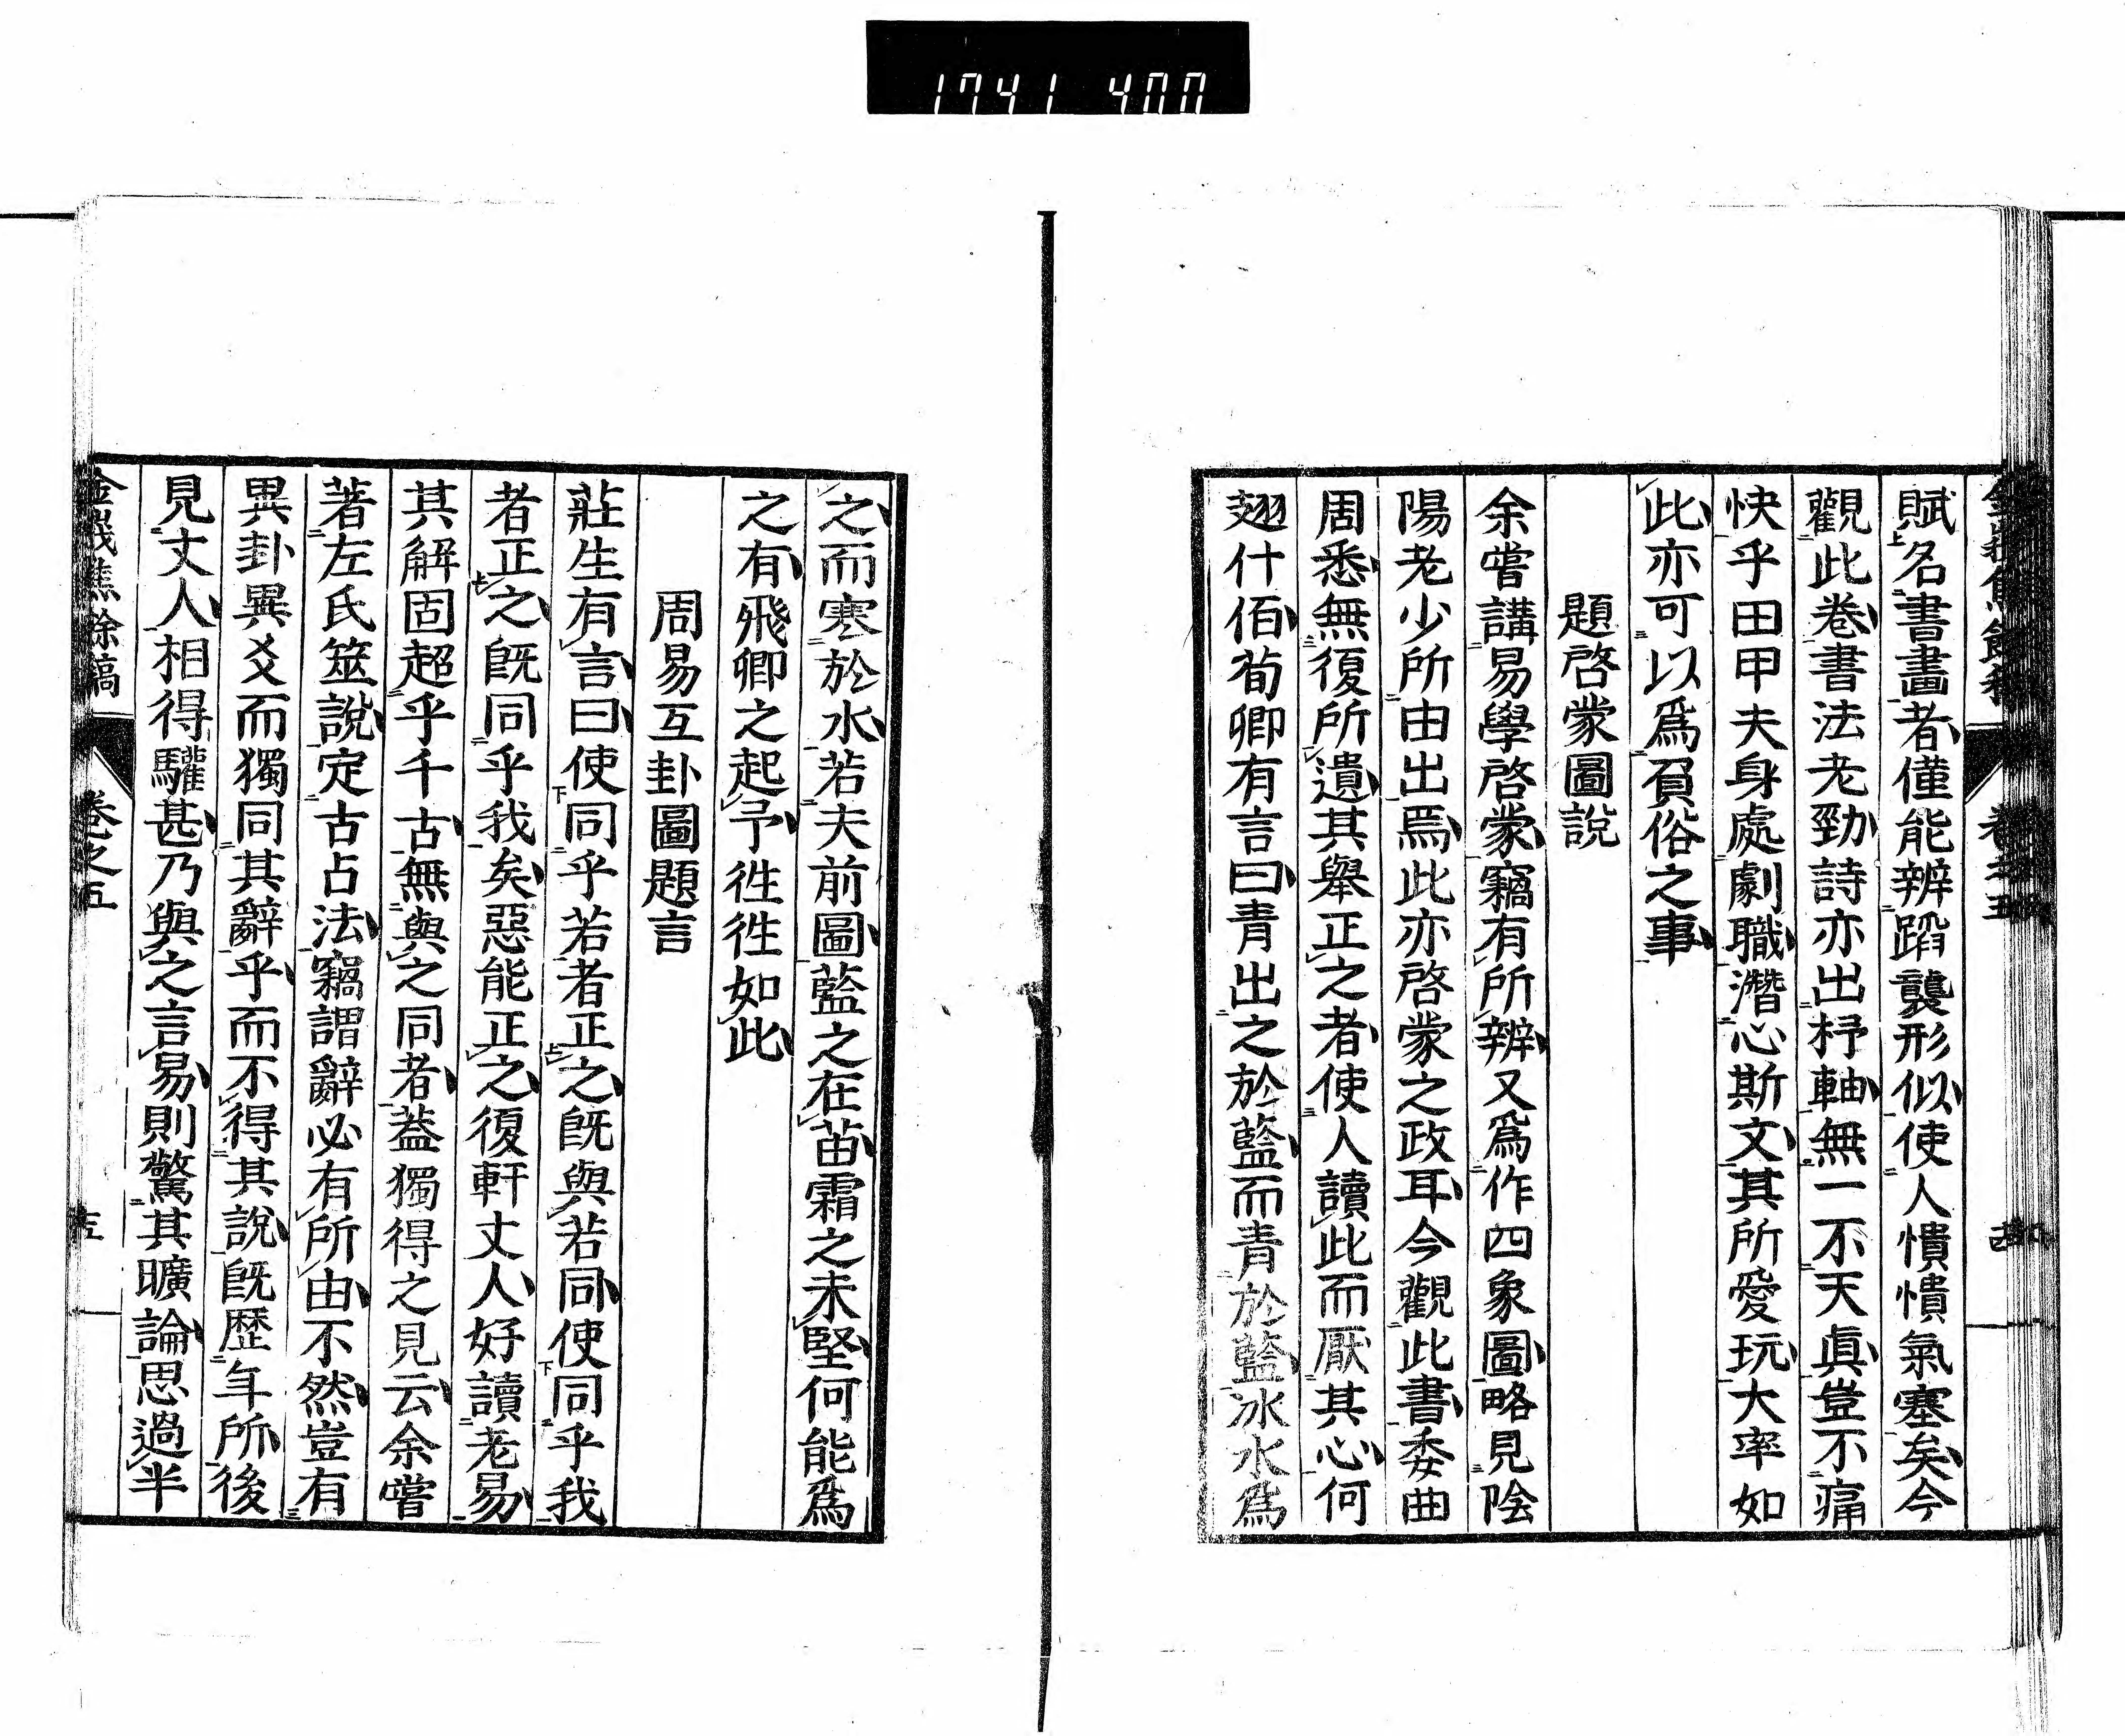 1741 400
賦名書畫者僅能辨蹈襲形似使人憒憒氣塞矣今
觀此卷書法老勁詩亦出杼軸無一不天眞豈不痛
快乎田甲夫身處劇職潛心斯文其所愛玩大率如
此亦可以爲負俗之事
題啓蒙圖說
余嘗講易學啓蒙竊有所辨又爲作四象圖略見陰
陽老少所由出焉此亦啓蒙之政耳今觀此書委曲
周悉無復所遺其舉正之者使人讀此而厭其心何
翅什佰荀卿有言曰青出之於藍而青於藍冰水爲
之而寒於水若夫前圖藍之在苗霜之未堅何能爲
之有飛卿之起予徃徃如此
周易互卦圖題言
莊生有言曰使同乎若者正之旣與若同使同乎我
者正之旣同乎我矣惡能正之復軒丈人好讀老易
其解固超乎千古無與之同者葢獨得之見云余嘗
著左氏筮說定古占法竊謂辭必有所由不然豈有
異卦異爻而獨同其辭乎而不得其說旣歴年所後
見丈人相得驩甚乃與之言易則驚其曠論思過半
金峩焦餘稿
卷之五